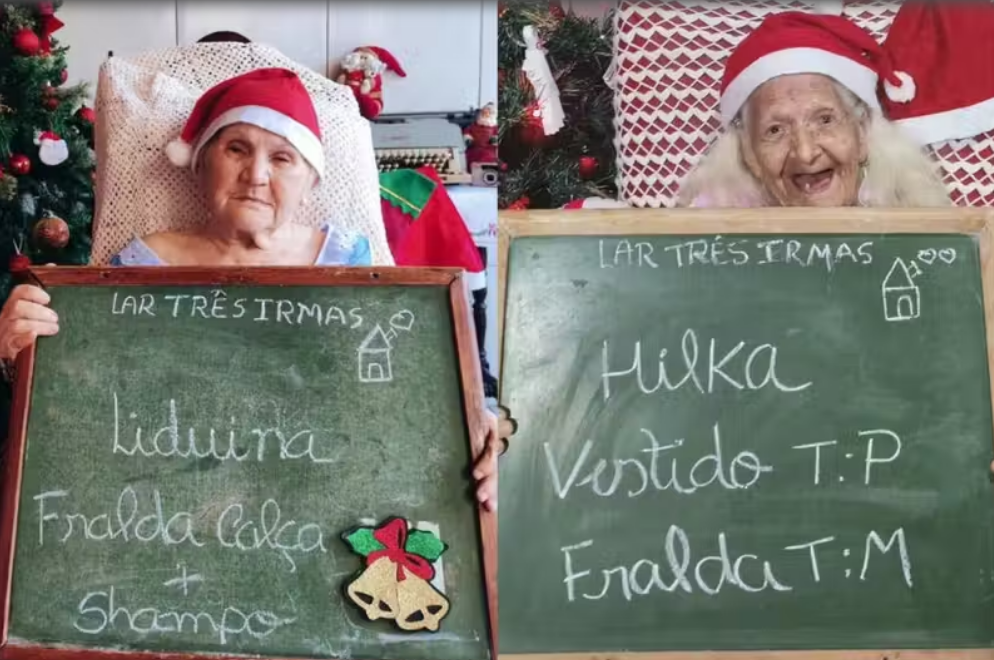 LAR TRÊS IRMAS
Liduina
Fralda Calça
+
Shampo
LAR TRÊS IRMAS
Hilka
Vestido T:P
Fralda T:M